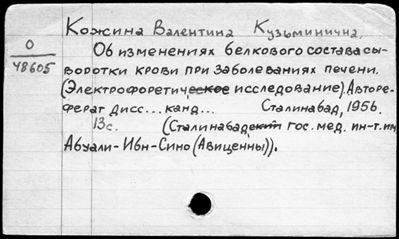 Кожина Валентина Кузьминична.
О
48605
Об изменениях белкового состава сы-
воротки крови при заболеваниях печени.
(Электрофоретическое исследование). Авторе-
ферат дисс... канд... Сталинабад, 1956.
13с. (Сталинабадский гос. мед. ин-т. им.
Абуали-Ибн-Сино (Авиценны)).